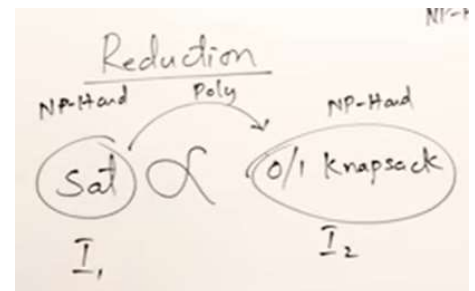 Reduction
NP-Hard Poly NP-Hard
Sat ∝ 0/1 Knapsack
I₁ I₂